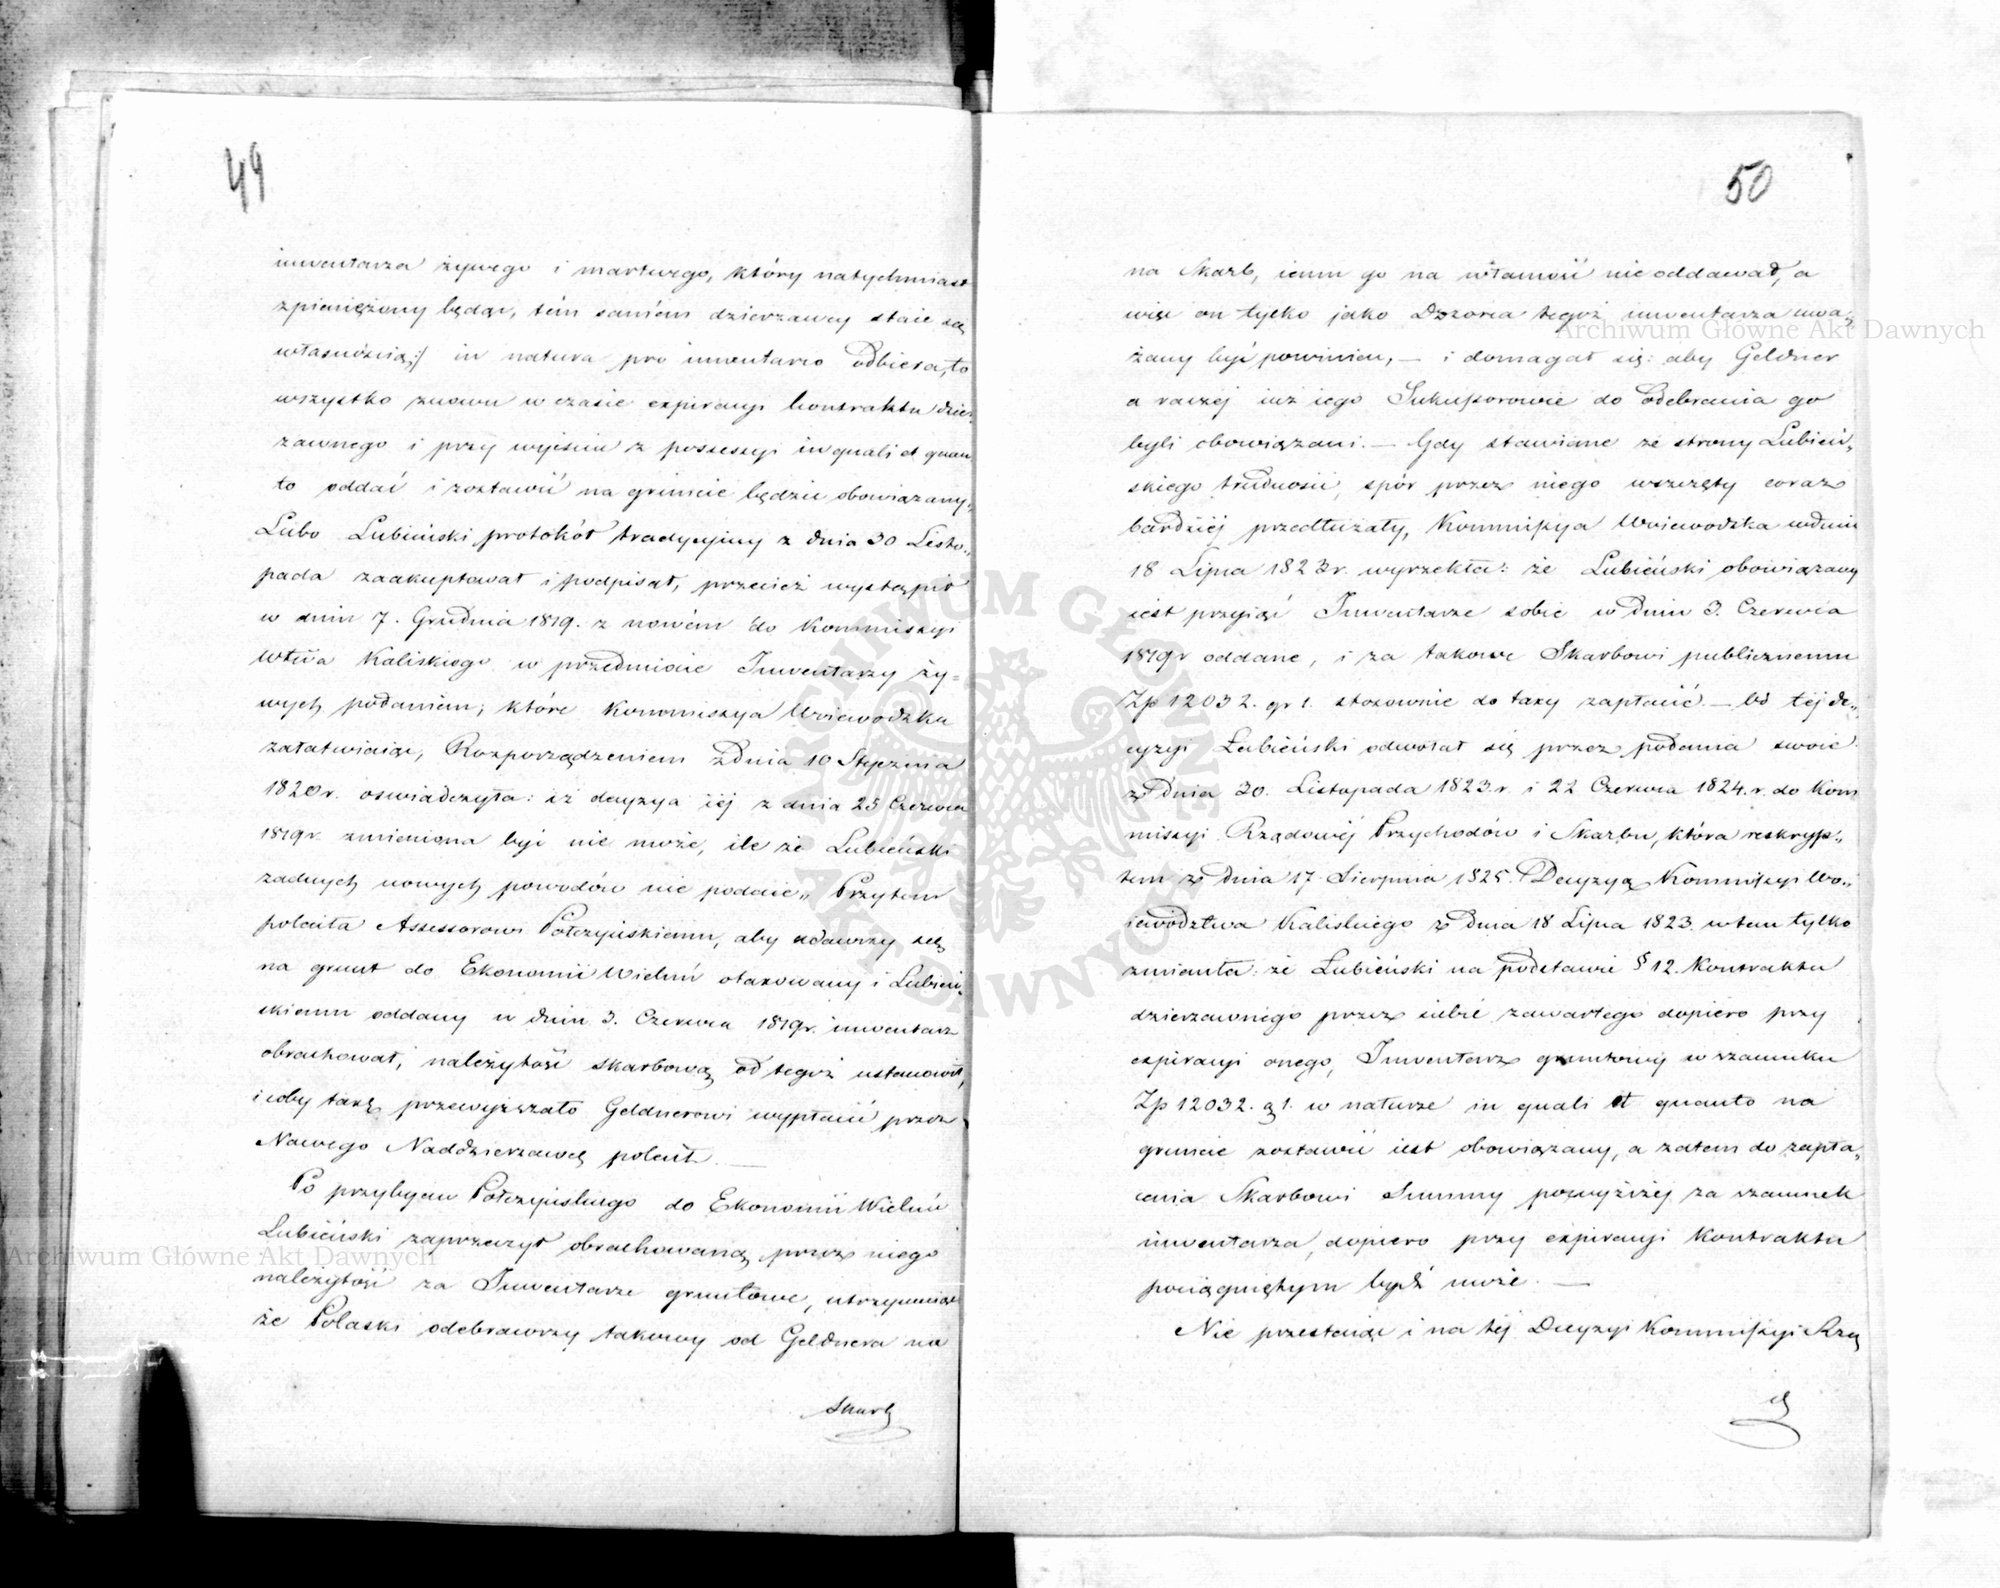 49
inwentarza żywego i martwego, który natychmiast
zpieniężony będąc, tém samém dzierzawcy staie się
własnością:/ in natura pro inwentario odbiera, to
wszystko znowu w czasie expiracyi kontraktu dzier„
zawnego i przy wyiściu z possessyi in quali et quan„
to oddać i zostawić na gruncie będzie obowiązany„
Lubo Lubieński protokół tradycyiny z dnia 30 Listo„
pada zaakceptował i podpisał, przecież wystąpił
w dniu 7. Grudnia 1819. z nowém do Kommissyi
Wtwa Kaliskiego w przedmiocie Inwentarzy ży=
wych podaniem; które Kommissya Woiewodzka
załatwiaiąc, Rozporządzeniem z Dnia 10 Stycznia
1820r. oswiadczyła: iż decyzya iéj z dnia 25 Czerwca
1819r. zmieniona być nie może, ile że Lubieński
żadnych nowych powodów nie podaie„ Przytem
poleciła Assessorowi Połczyńskiemu, aby udawszy się
na grunt do Ekonomii Wieluń otaxowany i Lubień„
skiemu oddany w dniu 3. Czerwca 1819r. inwentarz
obrachował, należytość skarbową od tegoż ustanowił,
i coby taxę przewyższało Geldnerowi wypłacić przez
Nowego Naddzierzawcę polecił. —
Po przybyciu Połczyńskiego do Ekonomii Wieluń
Lubieński zaprzeczył obrachowaną przez niego
należytość za Inwentarze gruntowe, utrzymuiąc
że Polaski odebrawszy takowy od Geldnera na
Skarb
50
na Skarb, iemu go na własność nie oddawał, a
więc on tylko jako Dozorca tegoż inwentarza uwa„
żany być powinien, — i domagał się: aby Geldner
a raczéj iuż iego Sukcessorowie do odebrania go
byli obowiązani. — Gdy stawiane ze strony Lubień„
skiego trudności, spór przez niego wszczęty coraz
bardziéj przedłużały, Kommissya Woiewodzka w dniu
18 Lipca 1823r. wyrzekła: że Lubieński obowiązany
iest przyiąć Inwentarze sobie w Dniu 3. Czerwca
1819r oddane, i za takowe Skarbowi publicznemu
Złp 12032. gr 1. stosownie do taxy zapłacić. — Od téj de„
cyzyi Łubieński odwołał się przez podania swoie
z Dnia 30. Listopada 1823.r. i 22 Czerwca 1824.r. do Kom
missyi Rządowéj Przychodów i Skarbu, która reskryp„
tem z Dnia 17. Sierpnia 1825. Decyzyą Kommissyi Wo„
iewództwa Kaliskiego z Dnia 18 Lipca 1823. w tem tylko
zmieniła: że Łubieński na podstawie § 12. Kontraktu
dzierzawnego przez siebie zawartego dopiero przy
expiracyi onego, Inwentarz gruntowy w szacunku
Złp 12032. g 1. w naturze in quali et quanto na
gruncie zostawić iest obowiązany, a zatem do zapła„
cenia Skarbowi Summy powyższéj za szacunek
inwentarza, dopiero przy expiracyi Kontraktu
pociągniętym bydź może. —
Nie przestaiąc i na téj Decyzyi Kommissyi Rzą